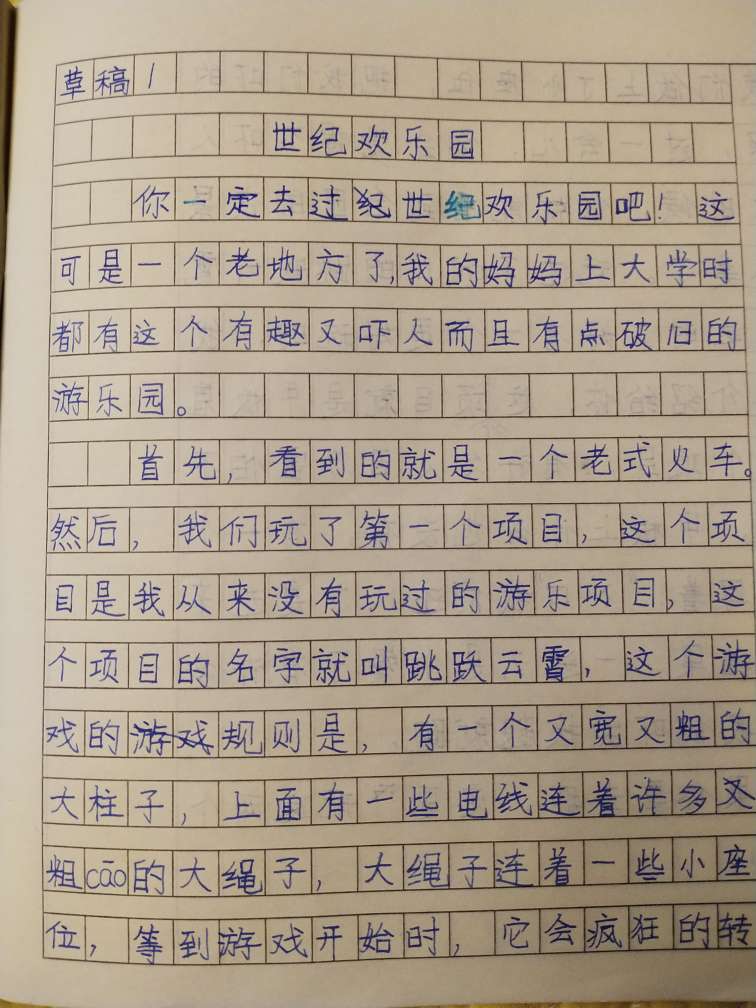 草稿1
世纪欢乐园
你一定去过世纪欢乐园吧！这
可是一个老地方了,我的妈妈上大学时
都有这个有趣又吓人而且有点破旧的
游乐园。
首先，看到的就是一个老式火车。
然后，我们玩了第一个项目，这个项
目是我从来没有玩过的游乐项目，这
个项目的名字就叫跳跃云霄，这个游
戏的规则是，有一个又宽又粗的
大柱子，上面有一些电线连着许多又
粗cāo的大绳子，大绳子连着一些小座
位，等到游戏开始时，它会疯狂的转